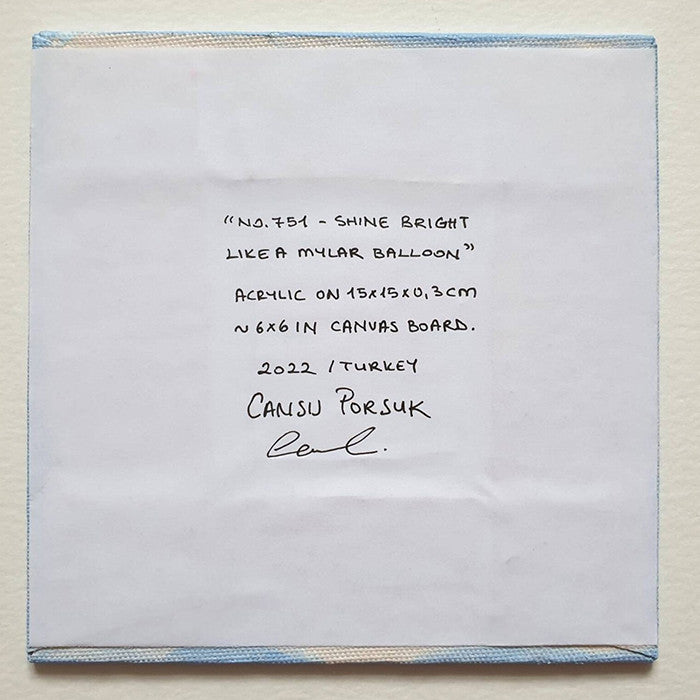 "NO.751 - SHINE BRIGHT
LIKE A MYLAR BALLOON"
ACRYLIC ON 15x15x0,3CM
~ 6x6 IN CANVAS BOARD.
2022 / TURKEY
CANSU PORSUK